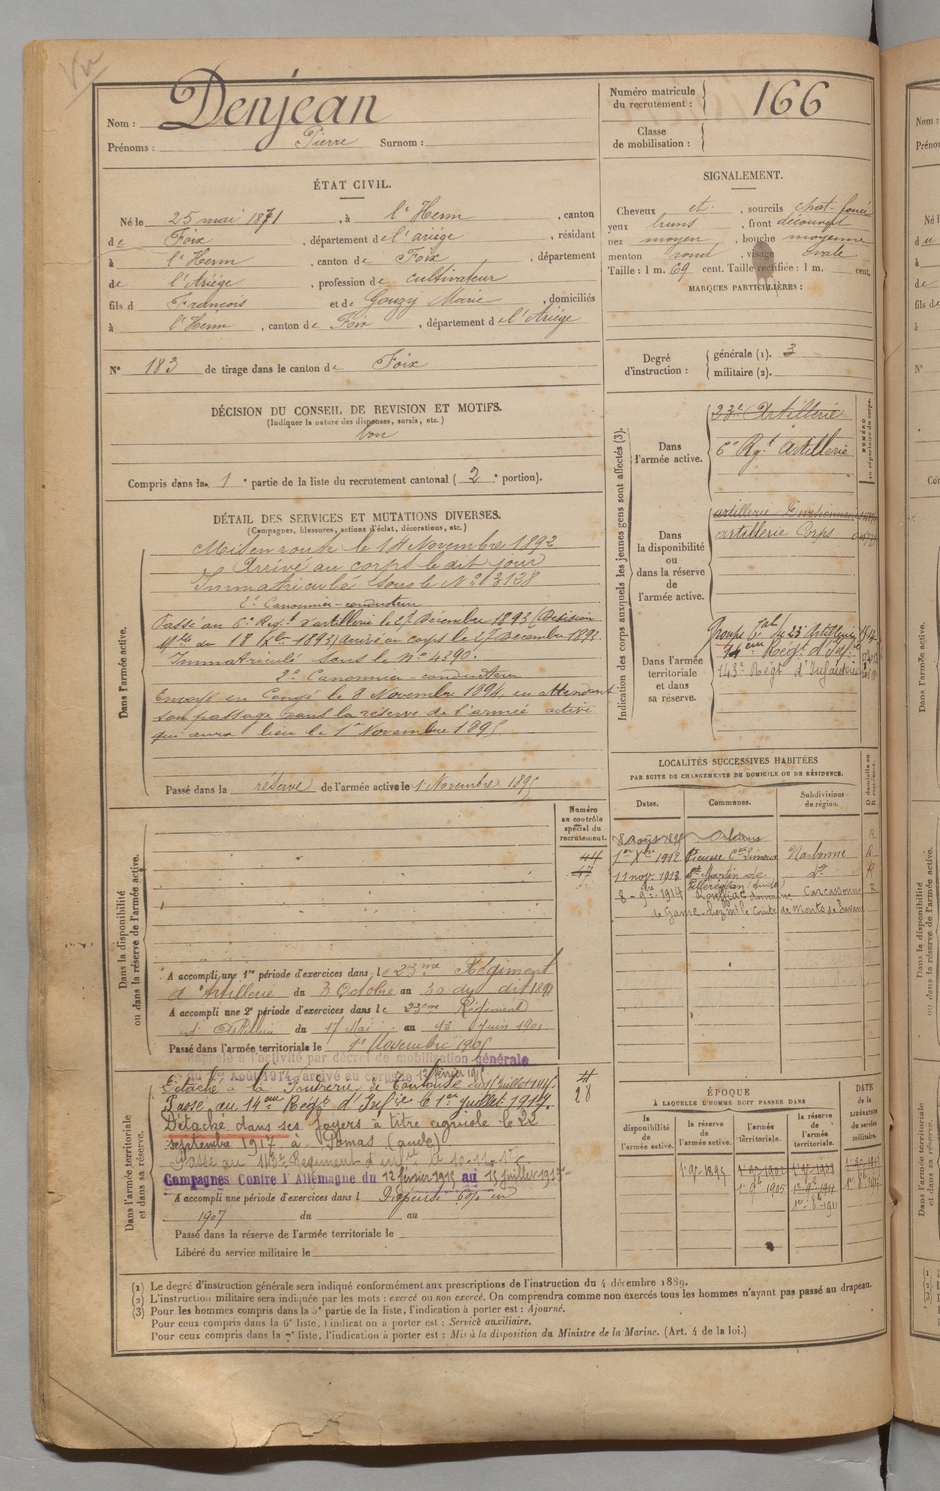 Vu
Nom : Denjean
Prénoms : Pierre Surnom :
Numéro matricule du recrutement : 166
Classe de mobilisation :
ÉTAT CIVIL.
Né le 25 mai 1871, à l'Herm, canton
de Foix, département de l'ariége, résidant
à l'Herm, canton de Foix, département
de l'Ariége, profession de cultivateur
fils de François et de Gouzy Marie, domiciliés
à l'Herm, canton de Foix, département de l'Ariége
N° 183 de tirage dans le canton de Foix
SIGNALEMENT.
Cheveux et, sourcils chat. foncé
yeux bruns, front découvert
nez moyen, bouche moyenne
menton rond, visage ovale
Taille : 1 m. 69 cent. Taille rectifiée : 1 m. cent.
MARQUES PARTICULIÈRES :
Degré d'instruction : générale (1). 3
militaire (2).
DÉCISION DU CONSEIL DE REVISION ET MOTIFS.
(Indiquer la nature des dispenses, sursis, etc.)
bon
Compris dans la 1e partie de la liste du recrutement cantonal (2e portion).
DÉTAIL DES SERVICES ET MUTATIONS DIVERSES.
(Campagnes, blessures, actions d'éclat, décorations, etc.)
Dans l'armée active.
Mis en route le 14 Novembre 1892
Arrivé au corps le dit jour
Immatriculé sous le N° 3128
2e Canonnier-conducteur
Passé au 6e Régt d'artillerie le 27 décembre 1893 (Décision
Mlle du 18 Xbre 1893) arrivé au corps le 27 Décembre 1893.
Immatriculé sous le n° 4390.
2e Canonnier-conducteur
Envoyé en Congé le 8 Novembre 1894, en attendant
son passage dans la réserve de l'armée active
qui aura lieu le 1er Novembre 1895
Passé dans la réserve de l'armée active le 1 Novembre 1895
Indication des corps auxquels les jeunes gens sont affectés (3).
Dans l'armée active.
23e Artillerie
6e Rgt Artillerie
NUMÉRO au répertoire du corps.
Dans la disponibilité ou dans la réserve de l'armée active.
artillerie
artillerie Corps
Dans l'armée territoriale et dans sa réserve.
Groupe Tal du 23 Artillerie
14eme Régt d'Infie
143e Régt d'Infanterie
LOCALITÉS SUCCESSIVES HABITÉES
PAR SUITE DE CHANGEMENTS DE DOMICILE OU DE RÉSIDENCE.
Dates. Communes. Subdivisions de région. D domicile ou R résidence.
Orléans R
1er Xbre 1912 Pieusse Con Limoux Narbonne R
11 nov. 1913 St Martin de Villereglan (aude) do R
8 - 9bre 1914 domaine Carcassonne R
de Game chez Mr le Comte de
Numéro au contrôle spécial du recrutement.
44
47
Dans la disponibilité ou dans la réserve de l'armée active.
A accompli une 1re période d'exercices dans le 23me Régiment
d'Artillerie du 3 Octobre au 30 du dit 1898
A accompli une 2e période d'exercices dans le 23eme Régiment
d'Artillerie du 17 Mai au 13 Juin 1901
Passé dans l'armée territoriale le 1er Novembre 1905
Dans l'armée territoriale et dans sa réserve.
Rappelé à l'activité par décret de mobilisation générale
du 1er Août 1914, arrivé au corps le 12 février 1915
Détaché à la Poudrerie de Toulouse
Passé au 14eme Régt d'Infie le 1er juillet 1917.
Détaché dans ses foyers à titre agricole le 22
septembre 1917 à Pomas (aude)
Passé au 143e Régiment d'infie
Campagnes Contre l'Allemagne du 12 février 1915 au 15 juillet 1915
A accompli une période d'exercices dans l
1907 du au
Passé dans la réserve de l'armée territoriale le
Libéré du service militaire le
28
ÉPOQUE
À LAQUELLE L'HOMME DOIT PASSER DANS
la disponibilité de l'armée active. la réserve de l'armée active. l'armée territoriale. la réserve de l'armée territoriale. DATE de la LIBÉRATION du service militaire.
1er 9bre 1895
1er 9bre 1905
(1) Le degré d'instruction générale sera indiqué conformément aux prescriptions de l'instruction du 4 décembre 1889.
(2) L'instruction militaire sera indiquée par les mots : exercé ou non exercé. On comprendra comme non exercés tous les hommes n'ayant pas passé au drapeau.
(3) Pour les hommes compris dans la 5e partie de la liste, l'indication à porter est : Ajourné.
Pour ceux compris dans la 6e liste, l'indication à porter est : Service auxiliaire.
Pour ceux compris dans la 7e liste, l'indication à porter est : Mis à la disposition du Ministre de la Marine. (Art. 4 de la loi.)